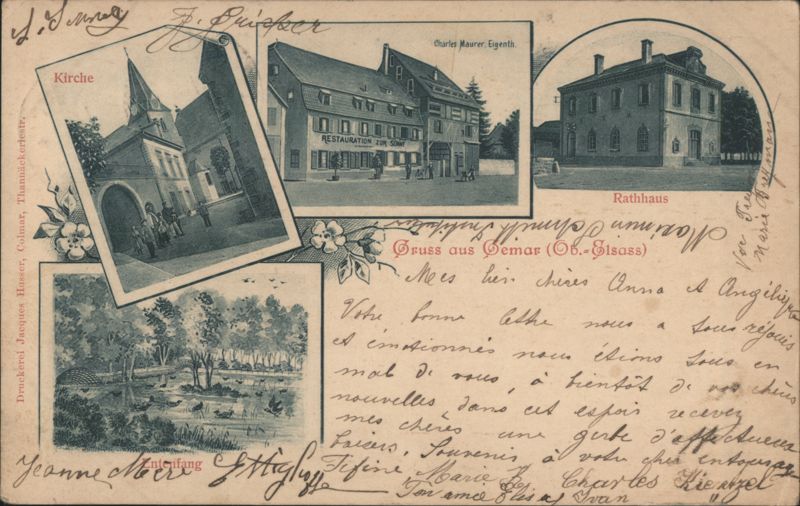 Kirche
Charles Maurer, Eigenth.
RESTAURATION ZUR SONNE
Rathhaus
Gruss aus Gemar (Ob.-Elsass)
Entenfang
Druckerei Jacques Husser, Colmar, Thannäckerlestr.
Mes bien chères Anna et Angélique
Votre bonne lettre nous a tous réjouis
et émotionnés nous étions tous en
mal de vous, à bientôt de vos chères
nouvelles, dans cet espoir recevez
mes chères une gerbe d'affectueux
baisers. Souvenir à votre cher entourage
Fifine Marie Charles Kienzel
Jeanne Mère
Ton amie Elisa Ivan